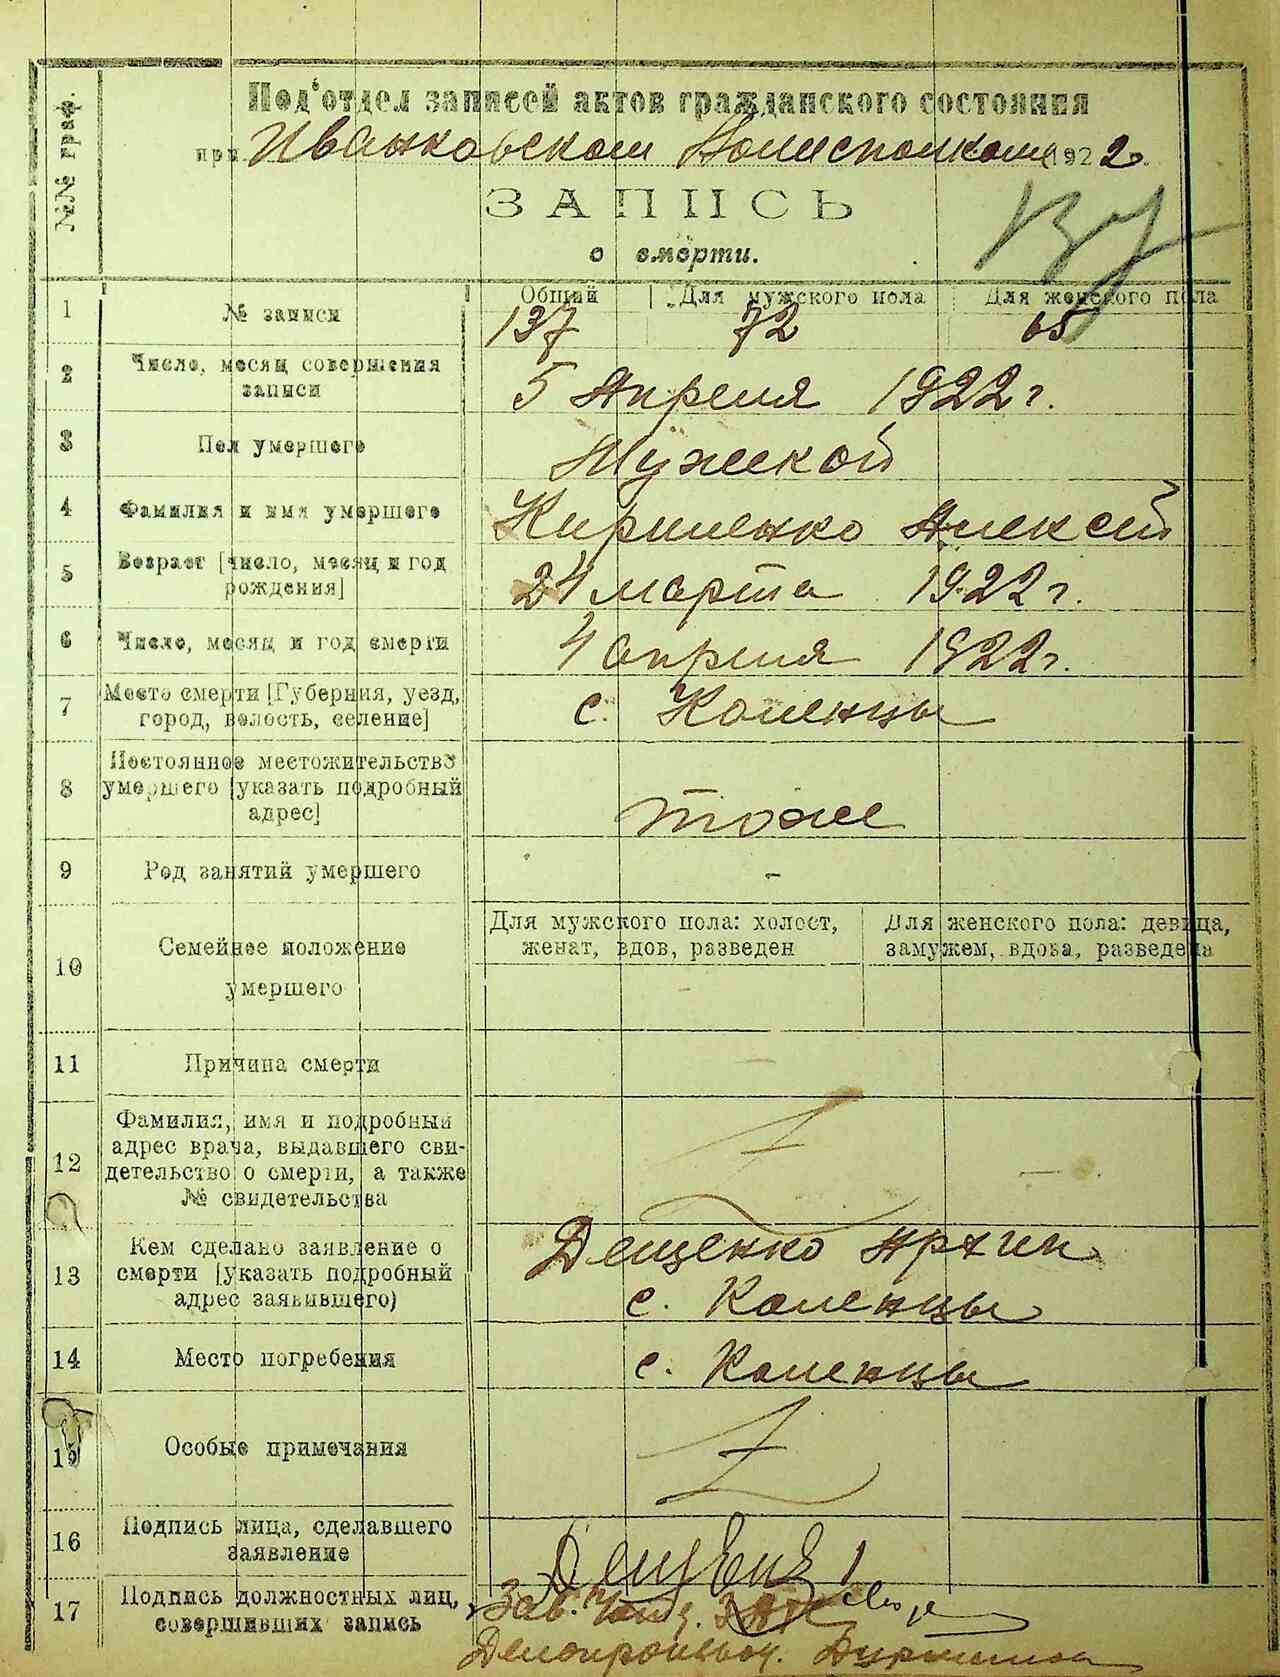 №№ граф.
Под'отдел записей актов гражданского состояния
при Иванковском Волисполкоме 1922.
ЗАПИСЬ
о смерти.
1 № записи Общий Для мужского пола Для женского пола
137 72 65
2 Число, месяц совершения записи 5 Апреля 1922 г.
3 Пол умершего Мужской
4 Фамилия и имя умершего Кириленко Алексей
5 Возраст [число, месяц и год рождения] 24 марта 1922 г.
6 Число, месяц и год смерти 4 апреля 1922 г.
7 Место смерти [Губерния, уезд, город, волость, селение] с. Коленцы
8 Постоянное местожительство умершего [указать подробный адрес] тоже
9 Род занятий умершего -
10 Семейное положение умершего
Для мужского пола: холост, женат, вдов, разведен
Для женского пола: девица, замужем, вдова, разведена
11 Причина смерти
12 Фамилия, имя и подробный адрес врача, выдавшего свидетельство о смерти, а также № свидетельства
13 Кем сделано заявление о смерти [указать подробный адрес заявившего) Дещенко
с. Коленцы
14 Место погребения с. Коленцы
15 Особые примечания
16 Подпись лица, сделавшего заявление
17 Подпись должностных лиц, совершивших запись Зав.
Делопроизвод.